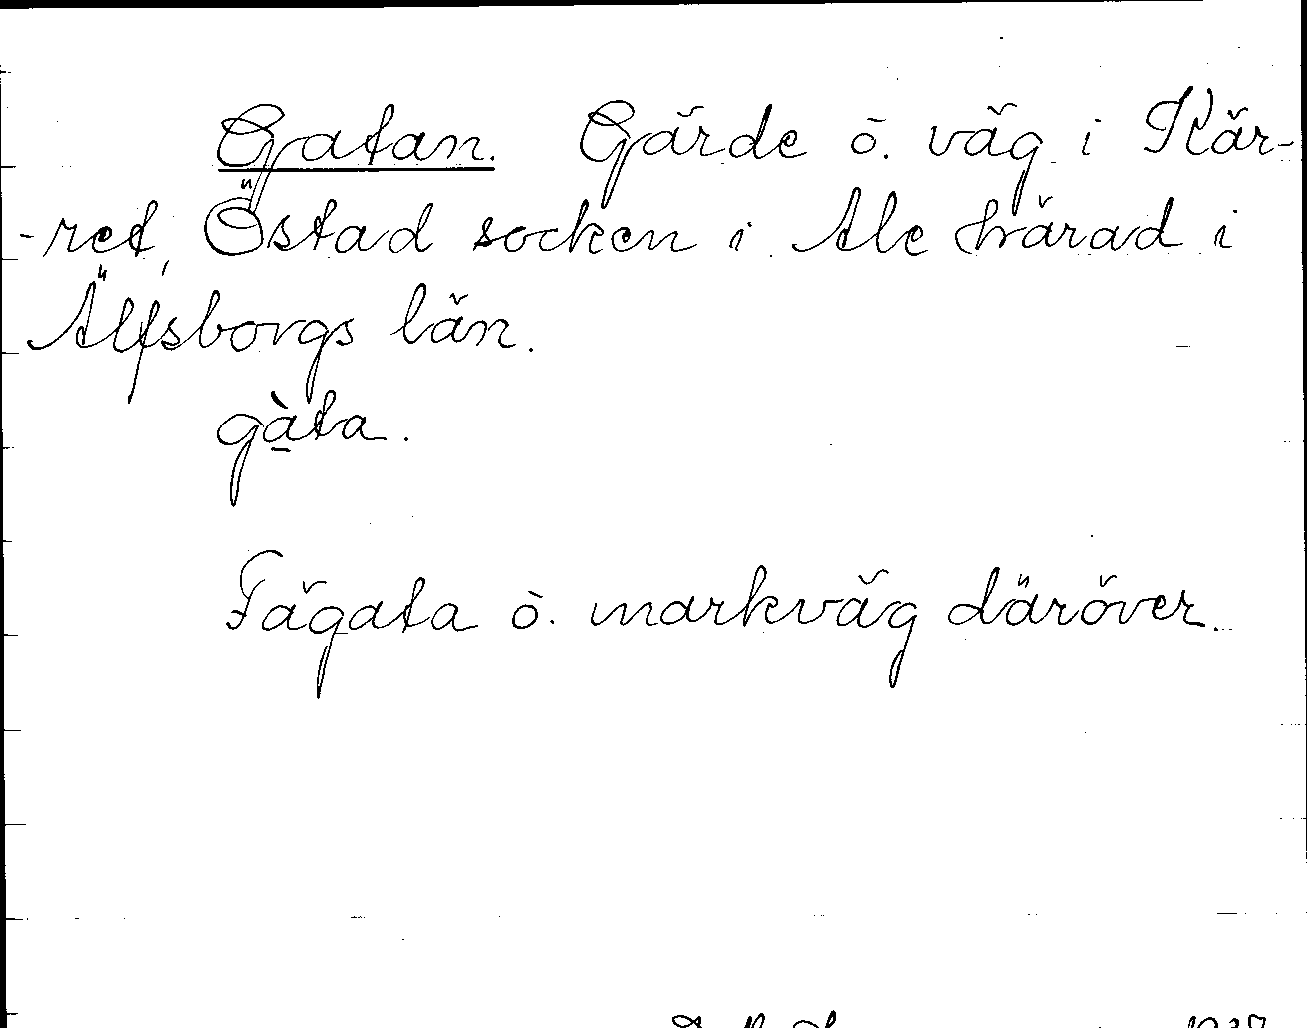 Gatan. Gärde ö. väg i Kär-
-ret, Östad socken i Ale härad i
Älfsborgs län.
gàta.
Fägata ö. markväg däröver.